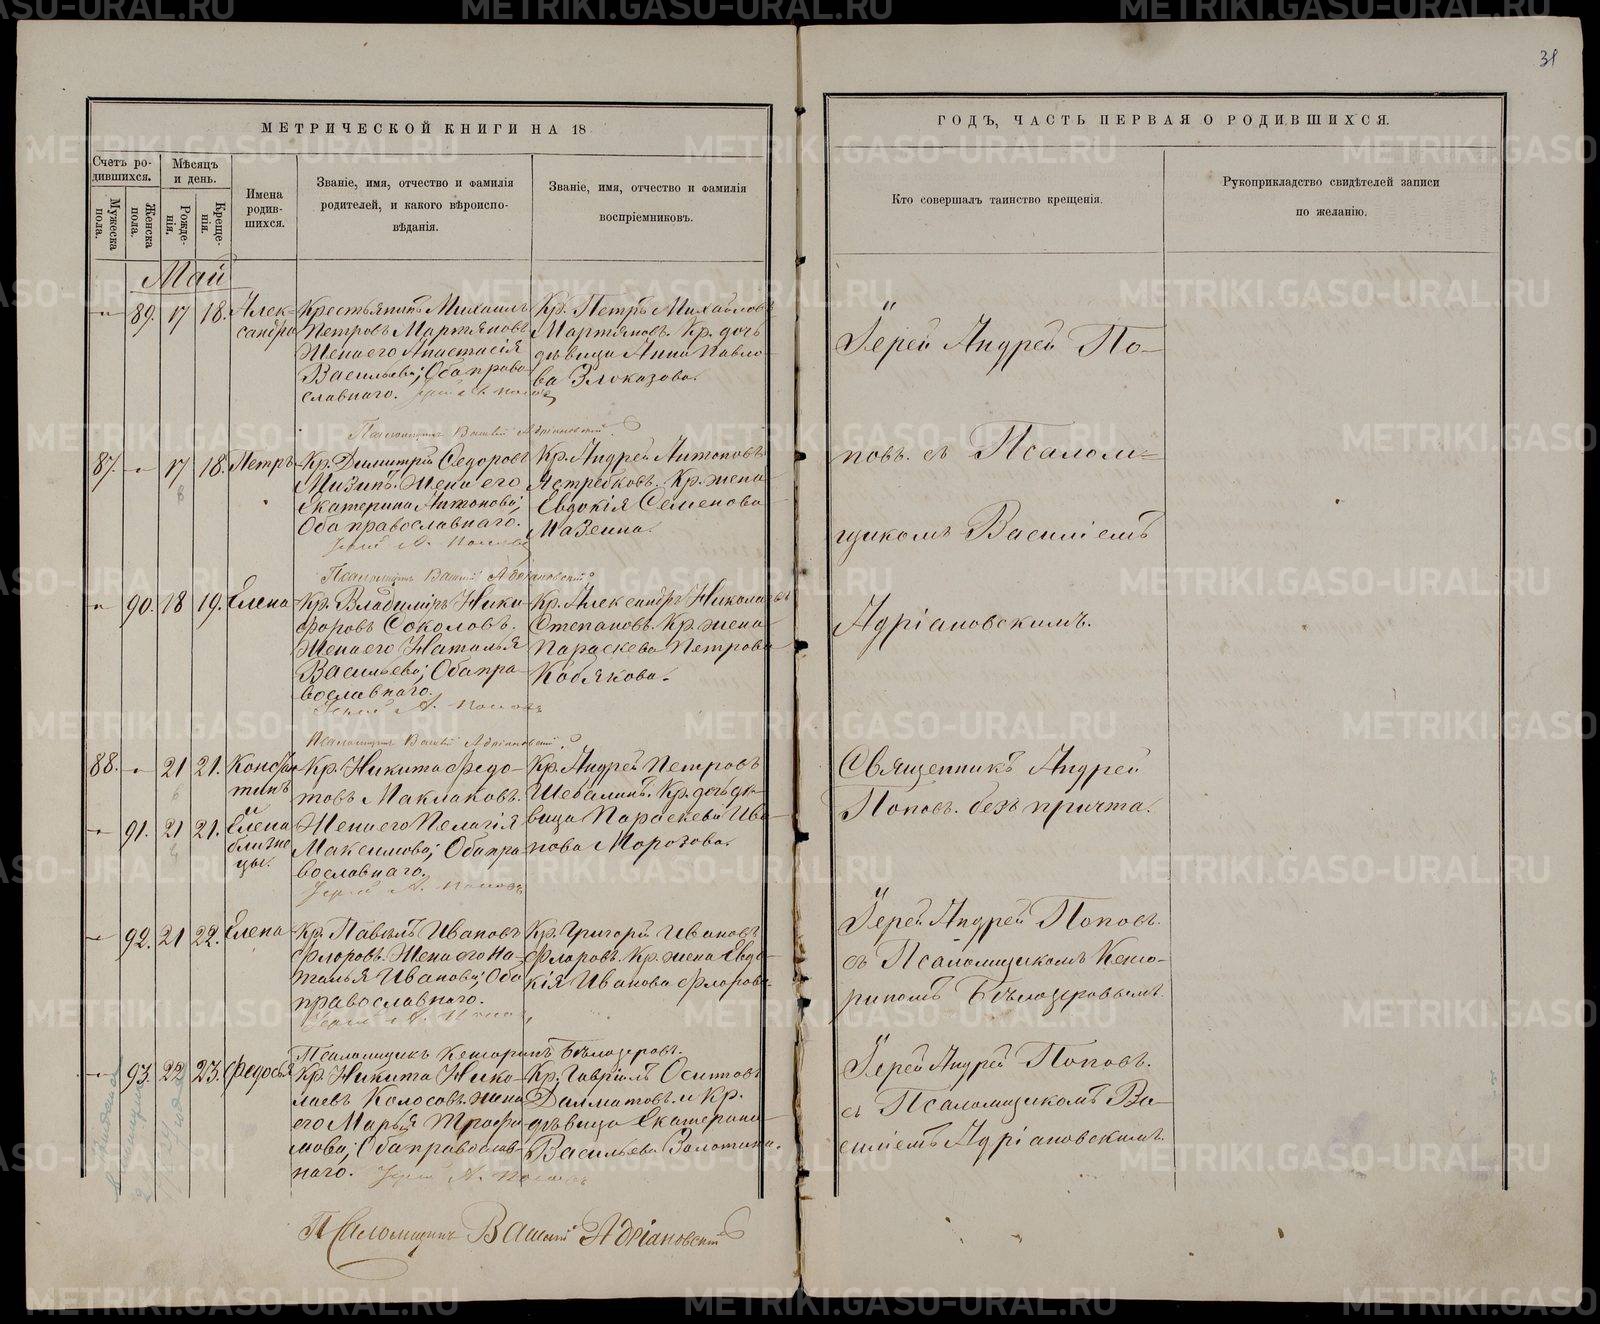 31
МЕТРИЧЕСКОЙ КНИГИ НА 18
ГОДЪ, ЧАСТЬ ПЕРВАЯ О РОДИВШИХСЯ.
Счетъ ро-
дившихся.
Мужеска
пола.
Женска
пола.
Мѣсяцъ
и день.
Рожде-
нія.
Креще-
нія.
Имена
родив-
шихся.
Званіе, имя, отчество и фамилія
родителей, и какого вѣроиспо-
вѣданія.
Званіе, имя, отчество и фамилія
воспріемниковъ.
Кто совершалъ таинство крещенія.
Рукоприкладство свидѣтелей записи
по желанію.
Май
89. 17 18. Алек-
сандра
Крестьянинъ Михаилъ
Петровъ Мартьяновъ
Жена его Анастасія
Васильева; Оба право-
славнаго. Іерей А. Поповъ
Кр. Петръ Михайловъ
Мартьяновъ. Кр. дочь
дѣвица Анна Павло-
ва Злоказова.
Псаломщикъ Василій Адріановскій
87. 17 18. Петръ
8
Кр. Димитрій Ѳедоровъ
Мизинъ. Жена его
Екатерина Антонова;
Оба православнаго.
Іерей А. Поповъ
Кр. Андрей Антоновъ
Ястребковъ. Кр. жена
Евдокія Семенова
Мазеина.
Псаломщикъ Василій Адріановскій
90. 18 19. Елена
Кр. Владиміръ Ники-
форовъ Соколовъ.
Жена его Наталья
Васильева; Оба пра-
вославнаго.
Іерей А. Поповъ
Кр. Александръ Николаевъ
Степановъ. Кр. жена
Параскева Петрова
Кобякова.
Іерей Андрей По-
повъ. съ Псалом-
щикомъ Василіемъ
Адріановскимъ.
Псаломщикъ Василій Адріановскій
88. 21 21. Констан-
тинъ
91. 21 21. и Елена
близне-
цы.
Кр. Никита Федо-
товъ Маклаковъ.
Жена его Пелагія
Максимова; Оба пра-
вославнаго.
Іерей А. Поповъ
Кр. Андрей Петровъ
Шебалинъ. Кр. дочь дѣ-
вица Параскева Ива-
нова Морозова.
Священникъ Андрей
Поповъ. безъ причта.
92. 21 22. Елена
Кр. Павелъ Ивановъ
Флоровъ. Жена его На-
талья Иванова; Оба
православнаго.
Іерей А. Поповъ
Кр. Григорій Ивановъ
Флоровъ. Кр. жена Евдо-
кія Иванова Флорова.
Іерей Андрей Поповъ.
съ Псаломщикомъ Кенso-
риномъ Бѣлозеровымъ.
Псаломщикъ Кенсоринъ Бѣлозеровъ.
93. 22 23. Федосья
Кр. Никита Нико-
лаевъ Колосовъ. жена
его Марья Трофи-
мова; Оба православ-
наго. Іерей А. Поповъ
Кр. Гавріилъ Осиповъ
Далматовъ. и Кр.
дѣвица Екатерина
Васильева Золотина.
Іерей Андрей Поповъ.
съ Псаломщикомъ Ва-
силіемъ Адріановскимъ.
Псаломщикъ Василій Адріановскій
METRIKI.GASO-URAL.RU